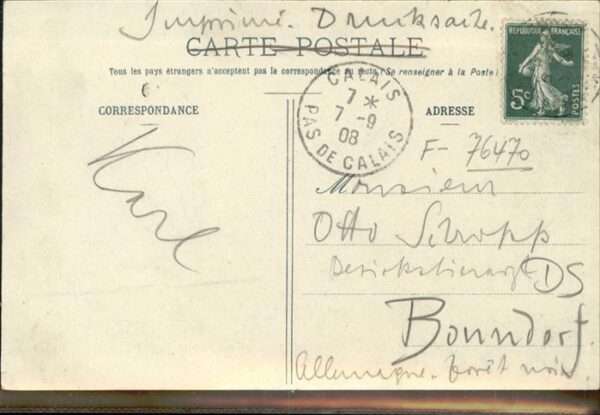 Imprimé. Drucksache.
CARTE POSTALE
Tous les pays étrangers n'acceptent pas la correspondance au recto. (Se renseigner à la Poste)
REPUBLIQUE FRANÇAISE
5c
POSTES
CALAIS
7 *
7 -9
08
PAS DE CALAIS
CORRESPONDANCE
ADRESSE
F- 76470
Karl
Monsieur
Otto Schropp
Bezirkstierarzt DS
Bonndorf.
Allemagne. forêt noire